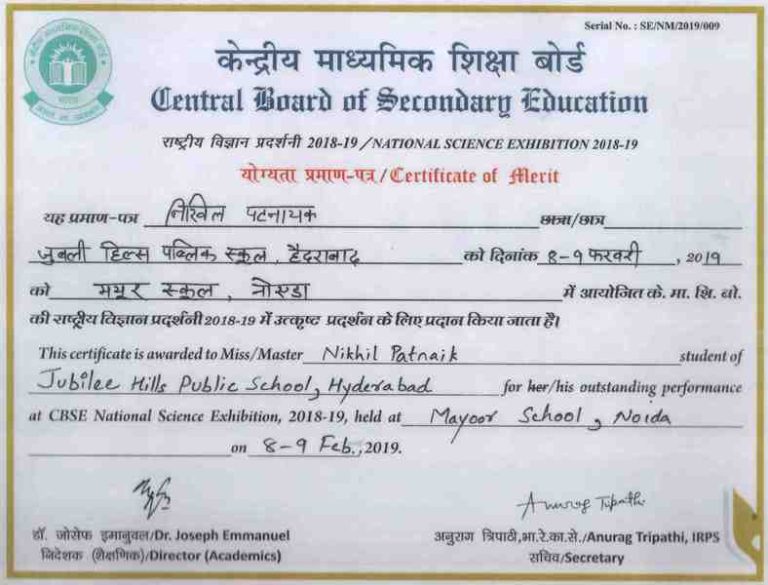 Serial No. : SE/NM/2019/009
केन्द्रीय माध्यमिक शिक्षा बोर्ड
Central Board of Secondary Education
राष्ट्रीय विज्ञान प्रदर्शनी 2018-19/NATIONAL SCIENCE EXHIBITION 2018-19
योग्यता प्रमाण-पत्र/Certificate of Merit
यह प्रमाण-पत्र निखिल पटनायक छात्रा/छात्र
जुबली हिल्स पब्लिक स्कूल, हैदराबाद को दिनांक 8-9 फरवरी, 2019
को मयूर स्कूल, नोएडा में आयोजित के. मा. शि. बो.
की राष्ट्रीय विज्ञान प्रदर्शनी 2018-19 में उत्कृष्ट प्रदर्शन के लिए प्रदान किया जाता है।
This certificate is awarded to Miss/Master Nikhil Patnaik student of
Jubilee Hills Public School, Hyderabad for her/his outstanding performance
at CBSE National Science Exhibition, 2018-19, held at Mayoor School, Noida
on 8-9 Feb.,2019.
Anurag Tripathi
डॉ. जोसेफ इमानुवल/Dr. Joseph Emmanuel
निदेशक (शैक्षणिक)/Director (Academics)
अनुराग त्रिपाठी,भा.रे.का.से./Anurag Tripathi, IRPS
सचिव/Secretary